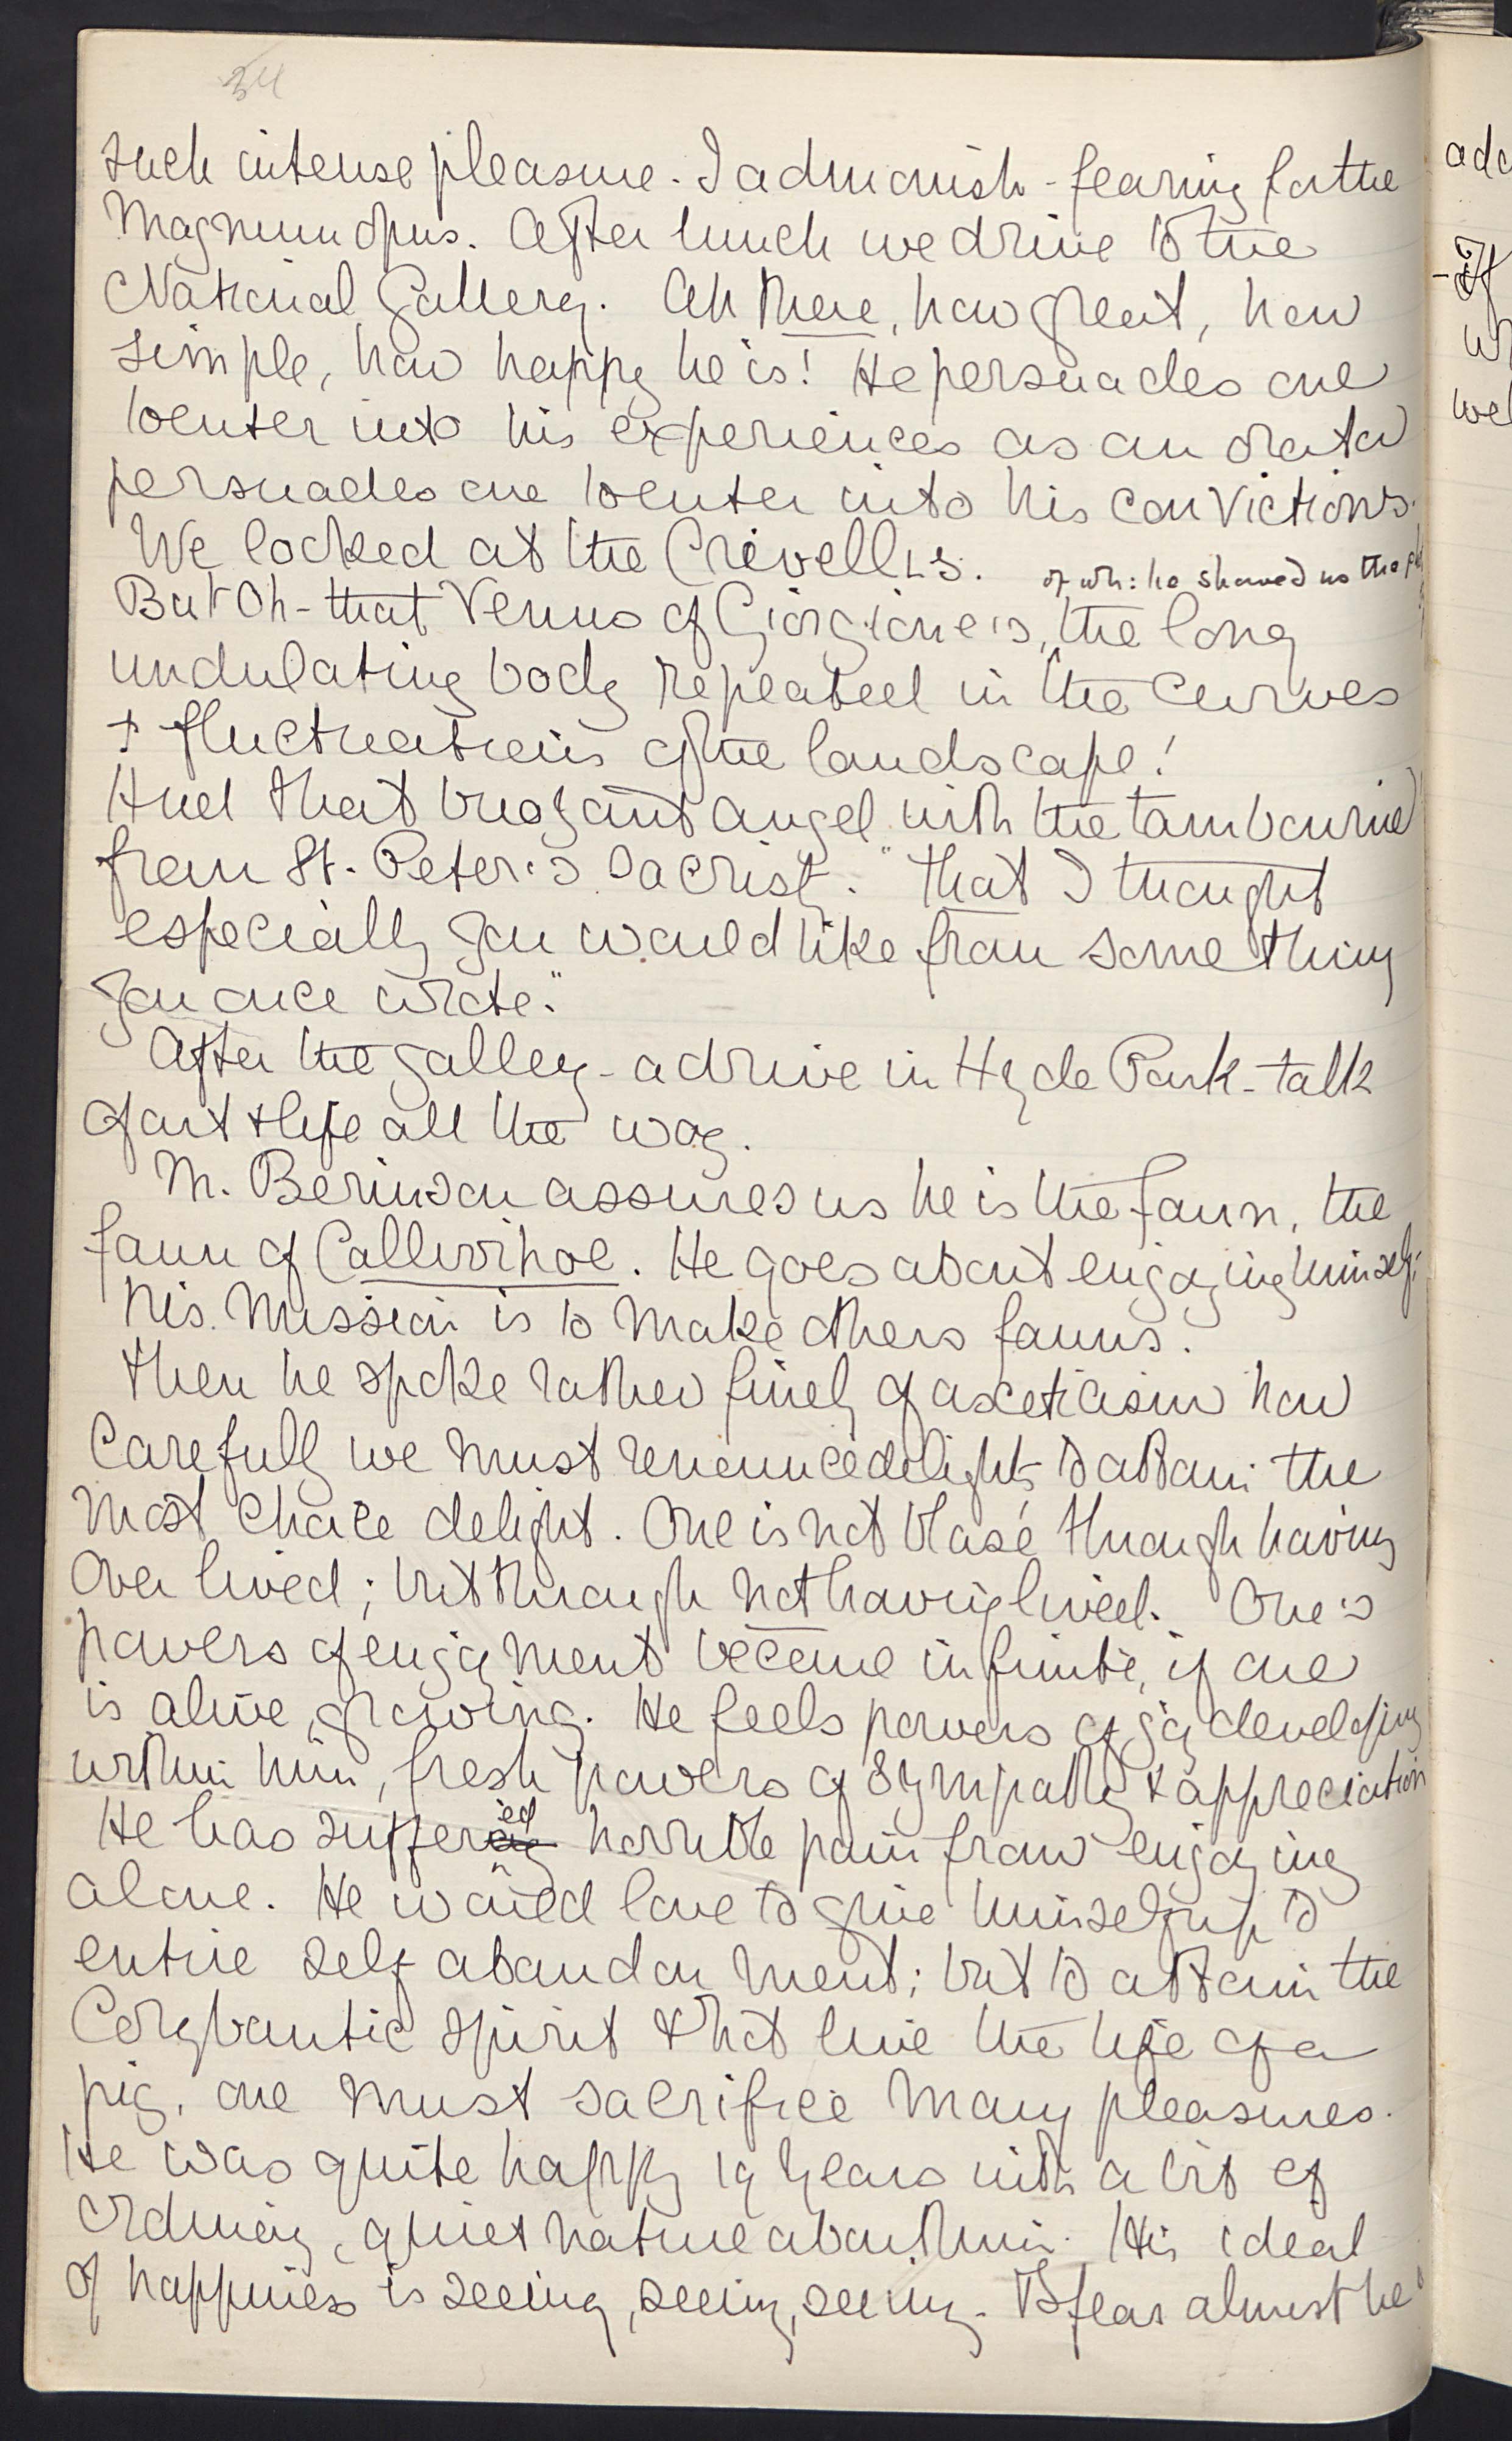 34
such intense pleasure. I admonish - fearing for the
Magnum opus. After lunch we drive to the
National Gallery. Ah there, how great, how
simple, how happy he is! He persuades one
to enter into his experiences as an orator
persuades one to enter into his convictions.
We looked at the Crivellis.
of wh: he showed us the
But Oh - that Venus of Giorgione's, the long
undulating body repeated in the curves
& fluctuations of the landscape!
And that buoyant angel with the tambourine
from St. Peter's Sacristy. "That I thought
especially you would like from something
you once wrote."
After the galley - a drive in Hyde Park - talk
of art & life all the way.
M. Berinson assures us he is the faun, the
faun of Callirrhoë. He goes about enjoying himself;
his mission is to make others fauns.
Then he spoke rather finely of asceticism how
carefully we must renounce delights to attain the
most choice delight. One is not blasé through having
over lived; but through not having lived. One's
powers of enjoyment become infinite, if one
is alive, growing. He feels powers of joy developing
within him, fresh powers of sympathy & appreciation
He has suffered horrible pain from enjoying
alone. He would love to give himself up to
entire self abandonment; but to attain the
Corybantic spirit & not live the life of a
pig, one must sacrifice many pleasures.
He was quite happy 19 years with a bit of
ordinary, quiet nature about him. His ideal
of happiness is seeing, seeing, seeing. To fear almost he
adv
-If
wh
wel